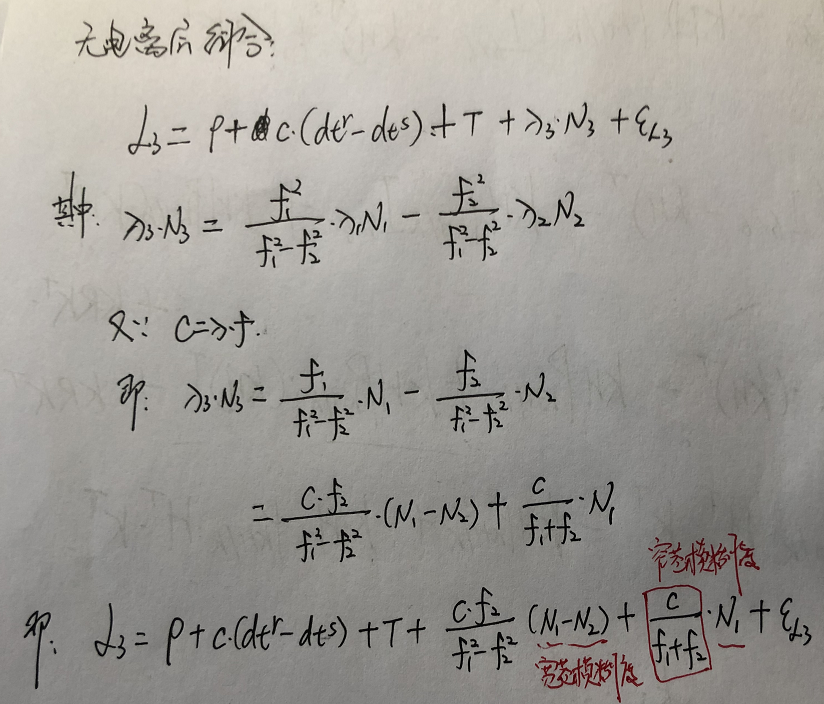 无电离层组合:
L₃ = ρ + c·(dtʳ - dtˢ) + T + λ₃·N₃ + ε_L₃
其中: λ₃·N₃ = f₁²/(f₁²-f₂²)·λ₁N₁ - f₂²/(f₁²-f₂²)·λ₂N₂
又∵ C=λ·f.
即: λ₃·N₃ = f₁/(f₁²-f₂²)·N₁ - f₂/(f₁²-f₂²)·N₂
= C·f₂/(f₁²-f₂²)·(N₁-N₂) + C/(f₁+f₂)·N₁
窄巷模糊度
即: L₃ = ρ + c·(dtʳ-dtˢ) + T + C·f₂/(f₁²-f₂²) (N₁-N₂) + C/(f₁+f₂)·N₁ + ε_L₃
宽巷模糊度